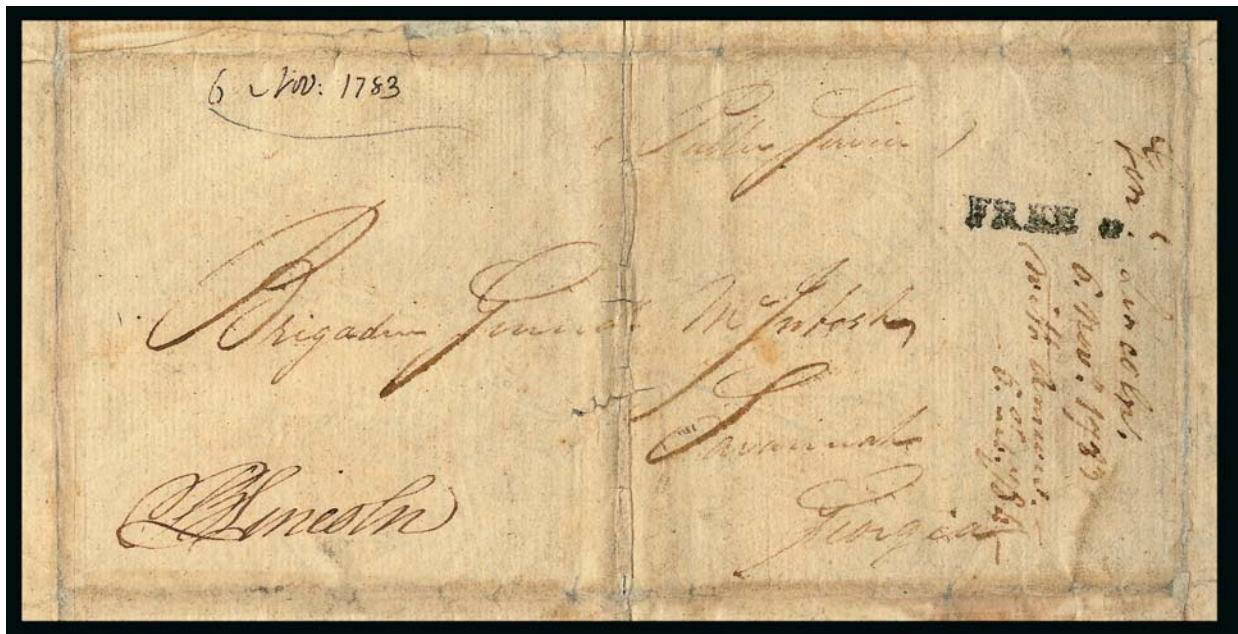 6 Nov: 1783
(Public Service)
FREE
Brigadier General McIntosh
Savannah
Georgia
BLincoln
Lincoln,
6. Nov.r 1783
with Amount.